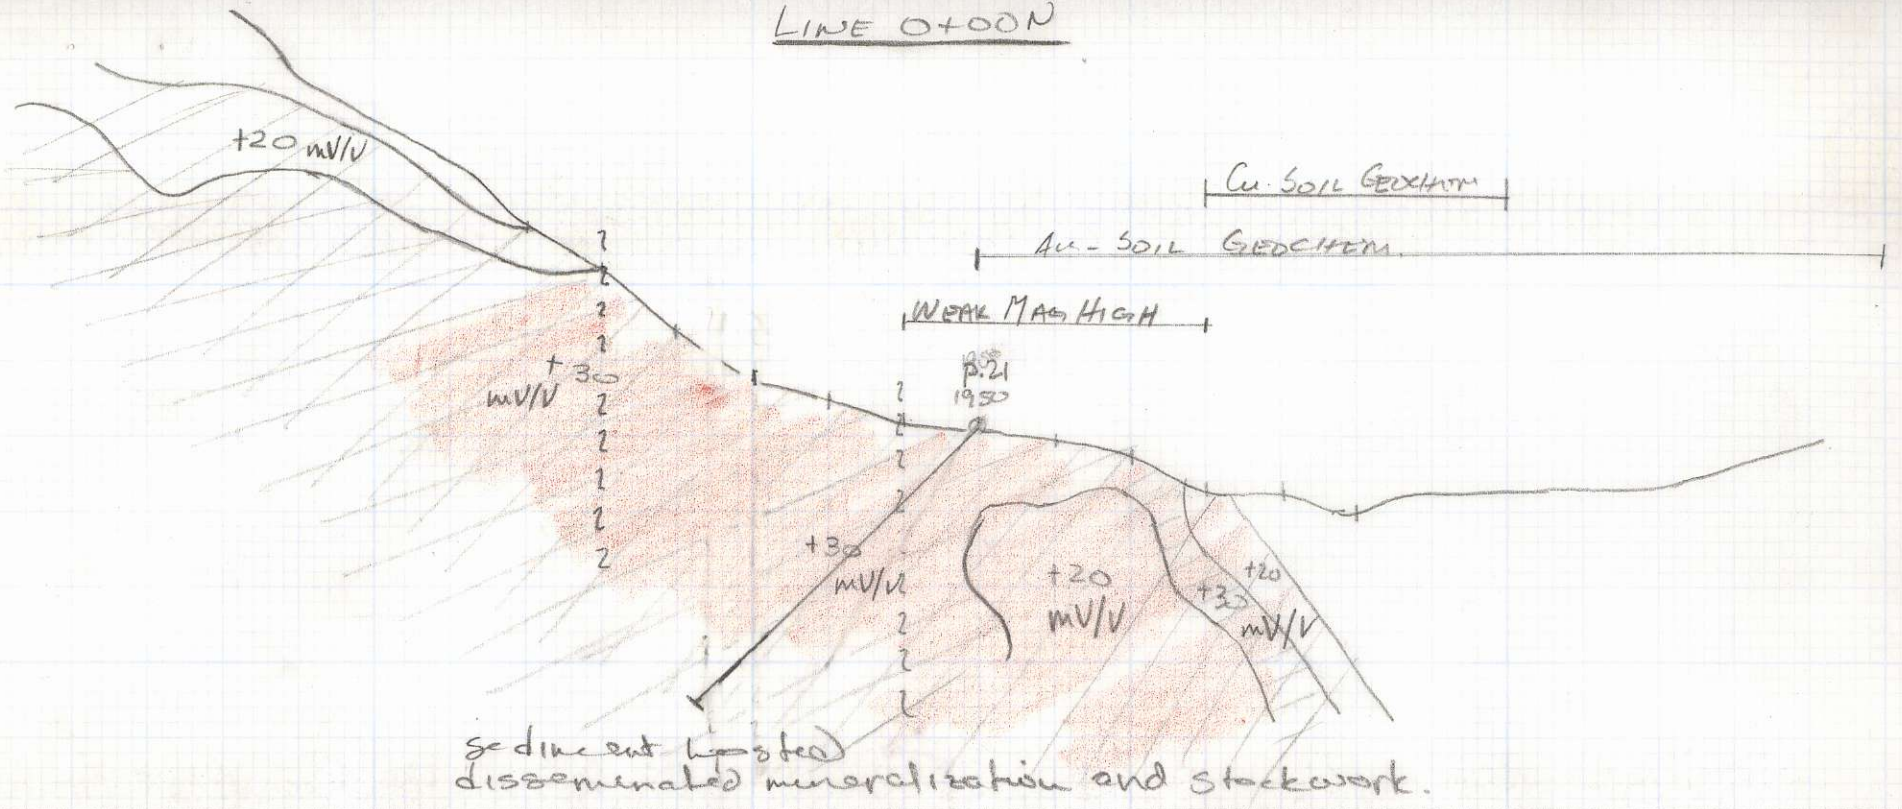 LINE 0+00N
+20 mV/V
Cu. SOIL GEOCHEM
Au - SOIL GEOCHEM.
WEAK MAG HIGH
p.21
1950
+30
mV/V
+30
mV/V
+20
mV/V
+20
+30
mV/V
sediment hosted
disseminated mineralization and stockwork.